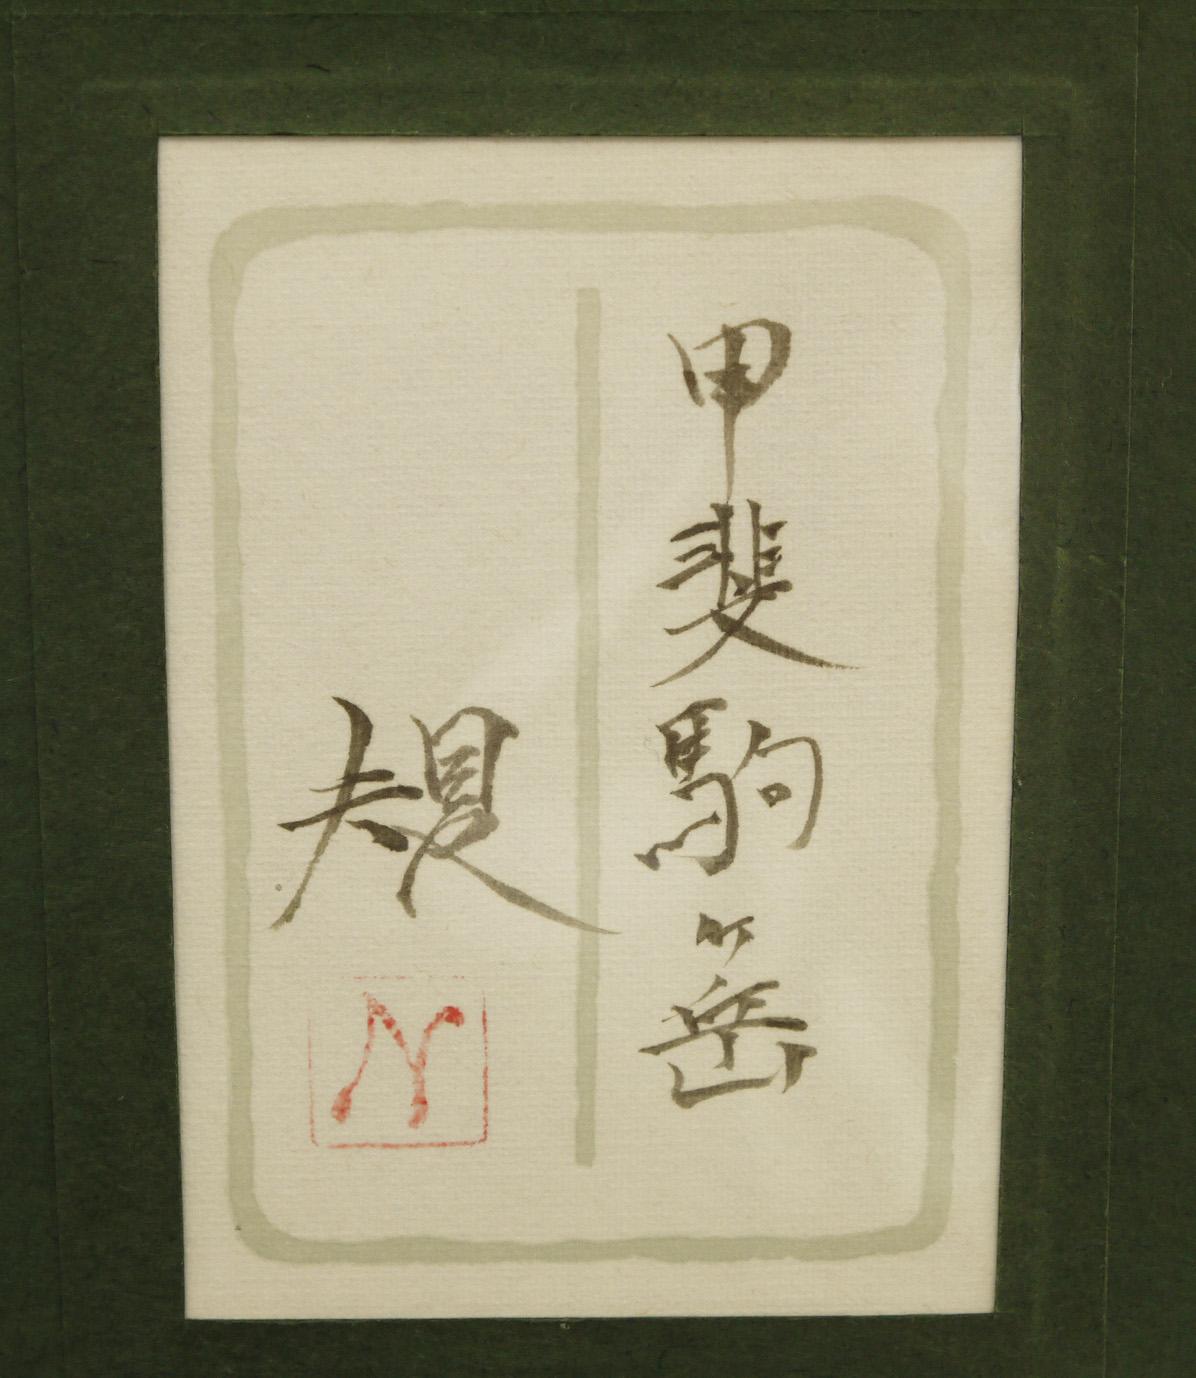 甲斐駒ヶ岳
規